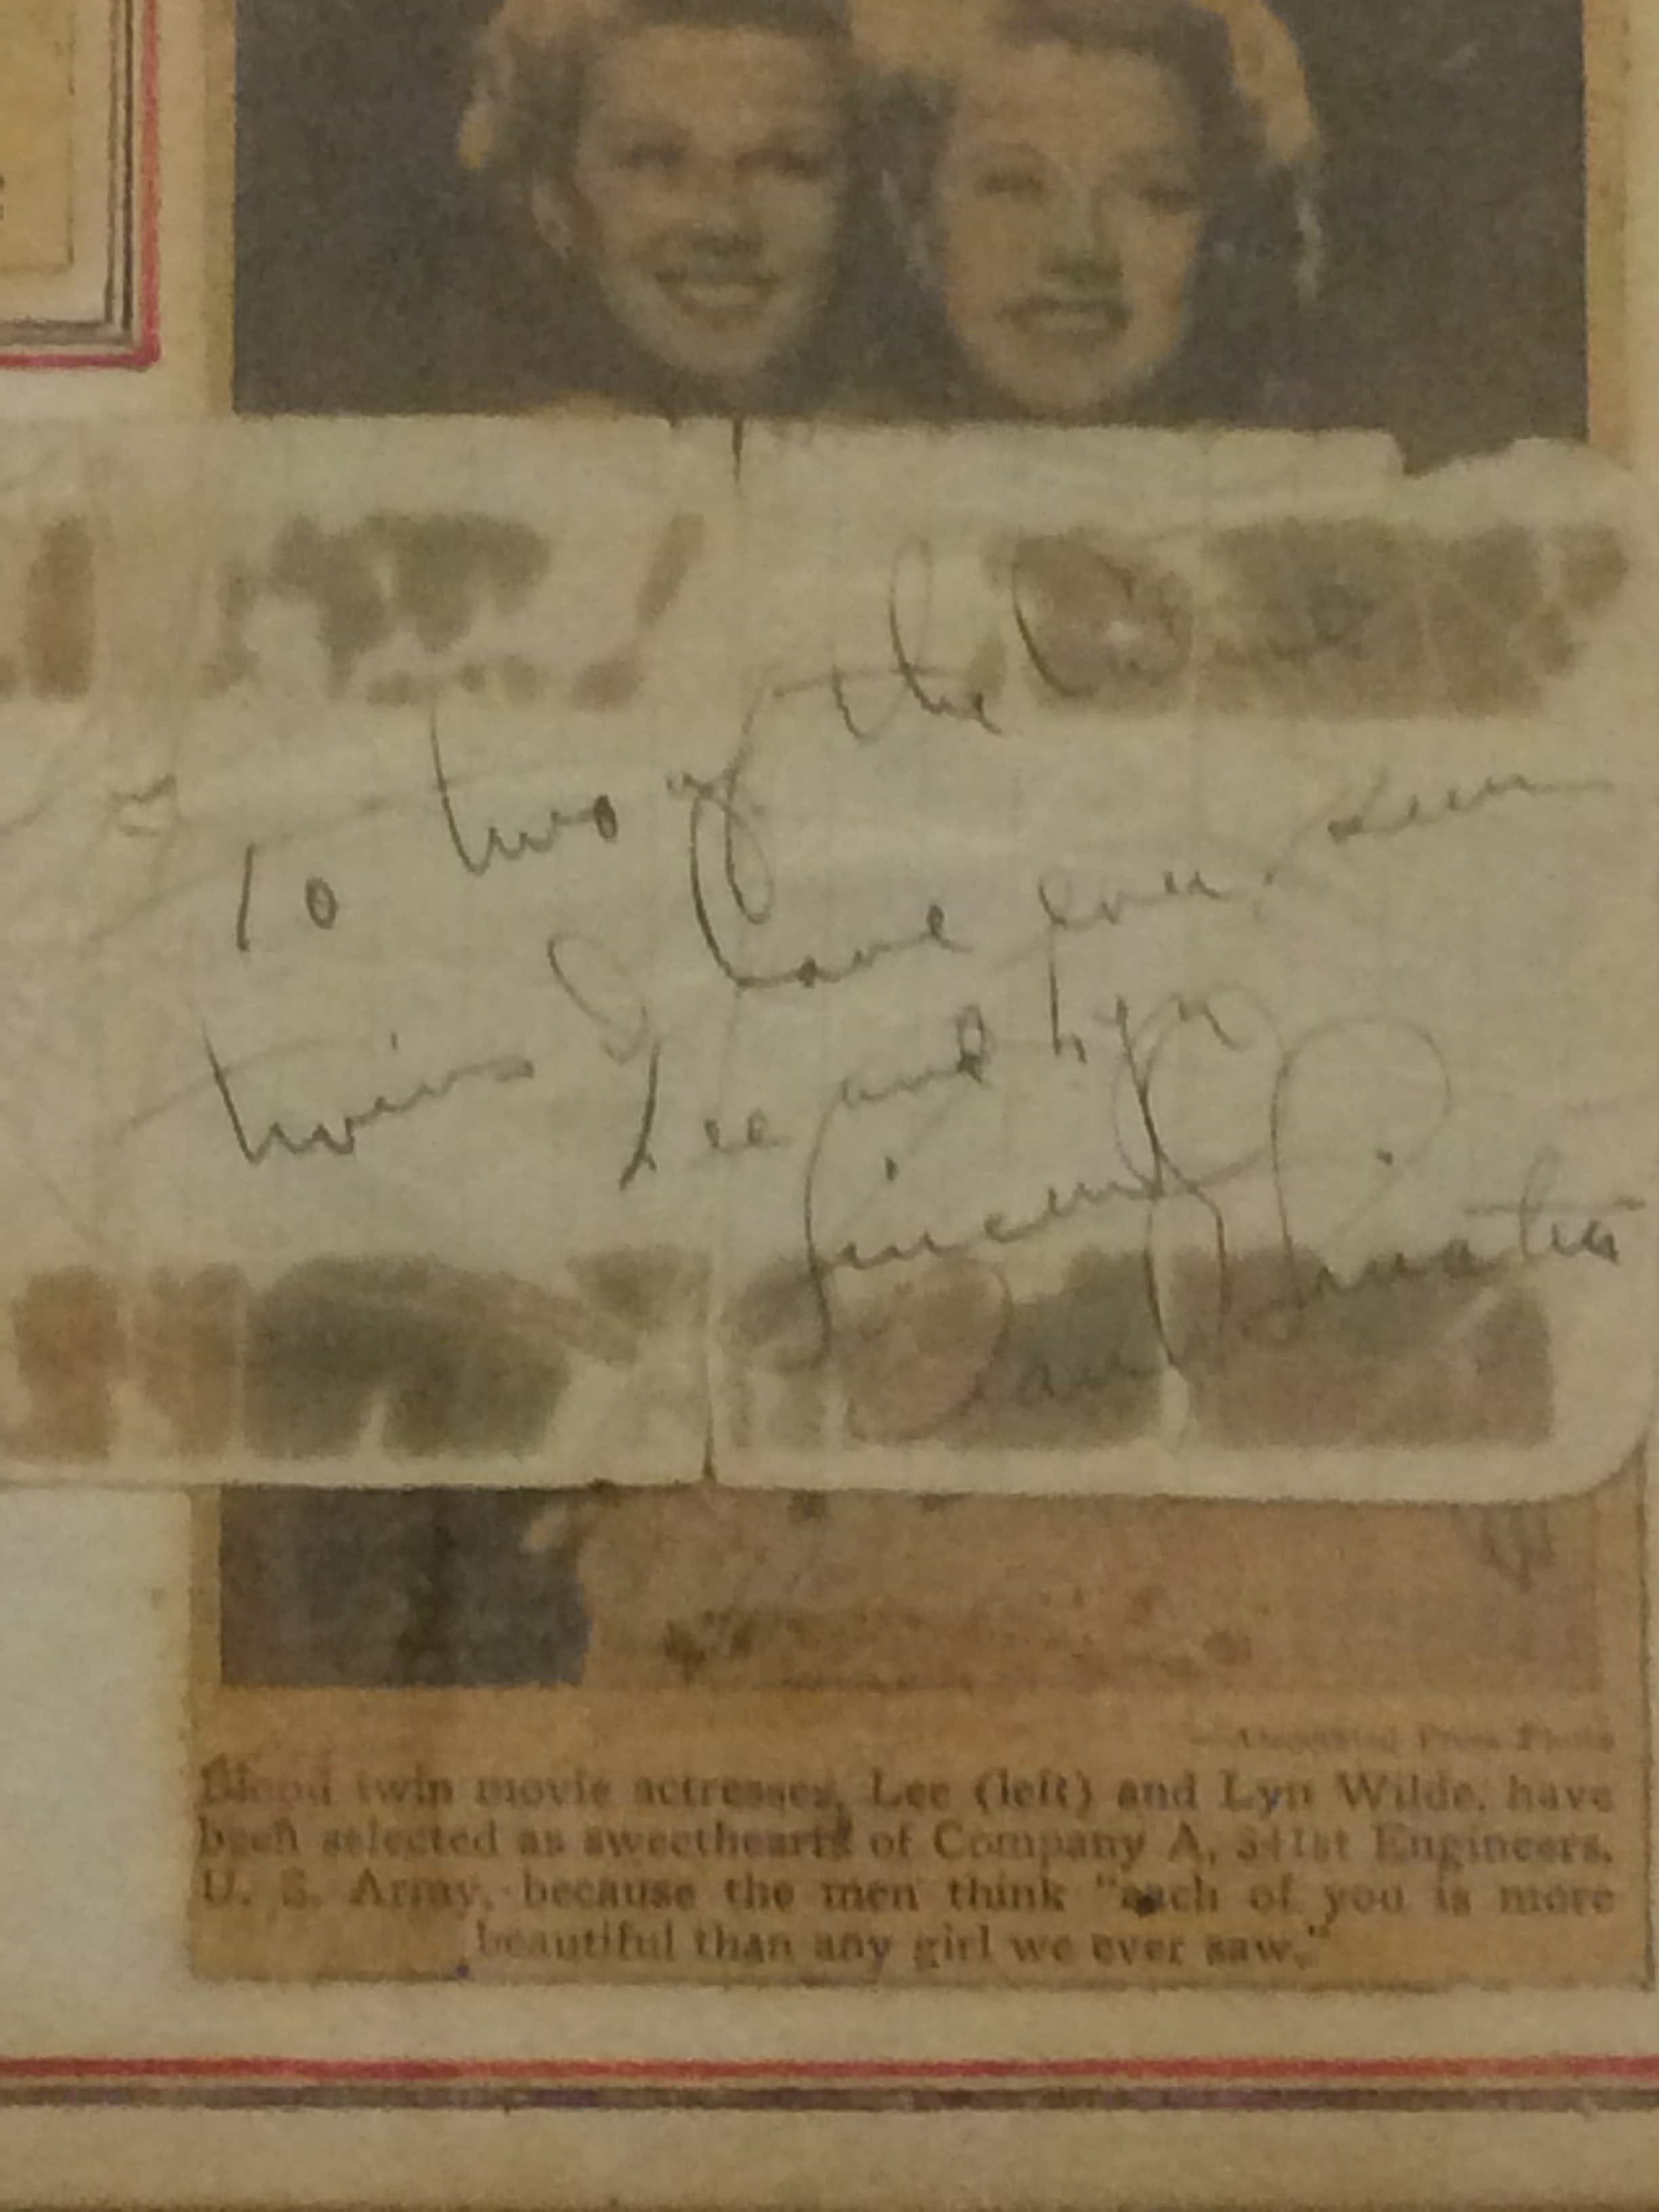 To two of the cutest
twins I have ever seen
Lee and Lyn
Sincerely
Frank Sinatra
—Associated Press Photo
Blond twin movie actresses, Lee (left) and Lyn Wilde, have
been selected as sweethearts of Company A, 341st Engineers,
U. S. Army, because the men think "each of you is more
beautiful than any girl we ever saw."